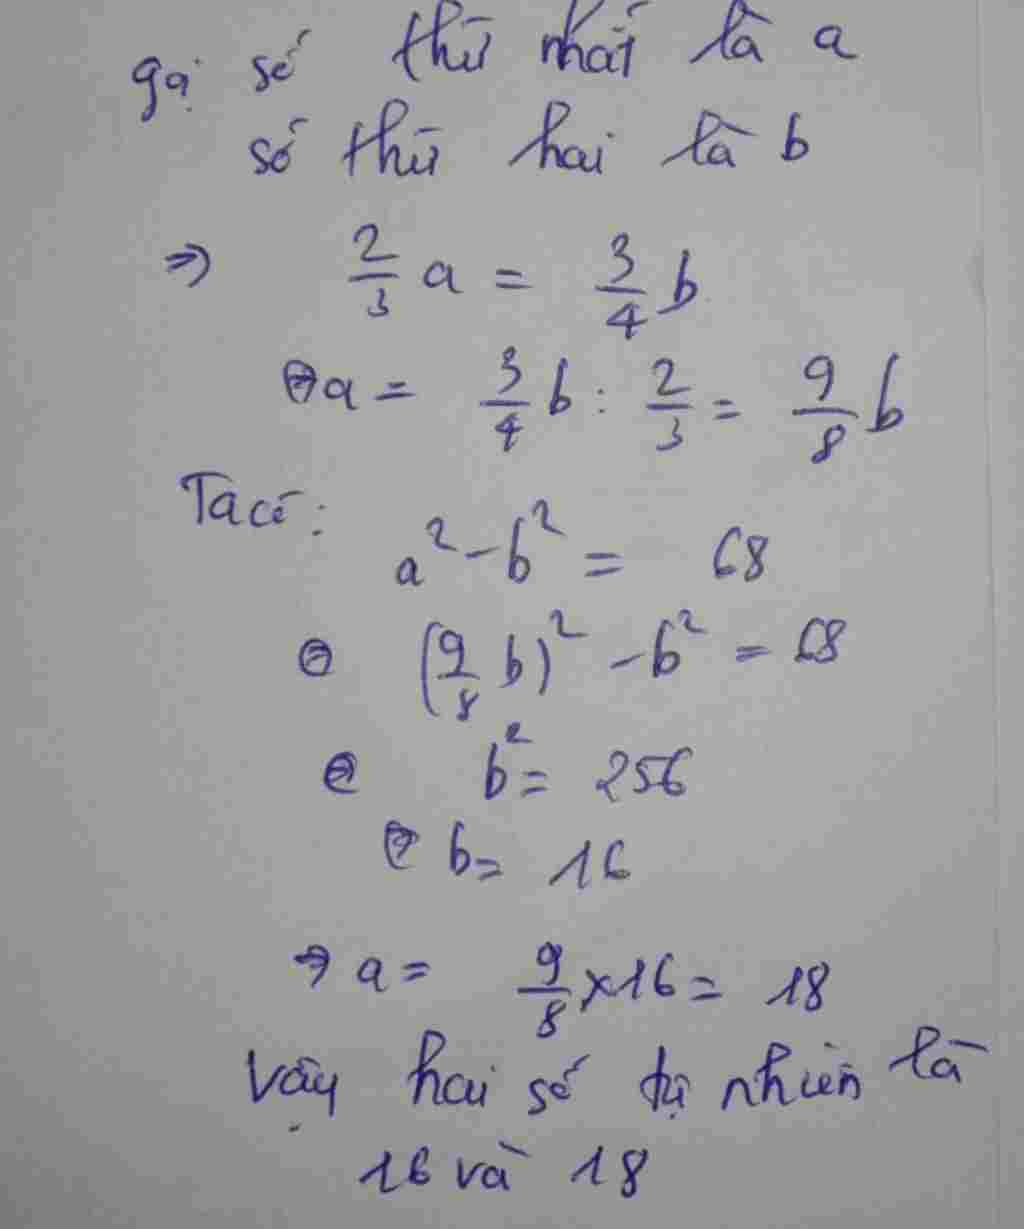 gọi số thứ nhất là a
số thứ hai là b
⇒ 2/3 a = 3/4 b
⇔ a = 3/4 b : 2/3 = 9/8 b
Ta có :
a² - b² = 68
⇔ (9/8 b)² - b² = 68
⇔ b² = 256
⇔ b = 16
→ a = 9/8 × 16 = 18
Vậy hai số tự nhiên là
16 và 18